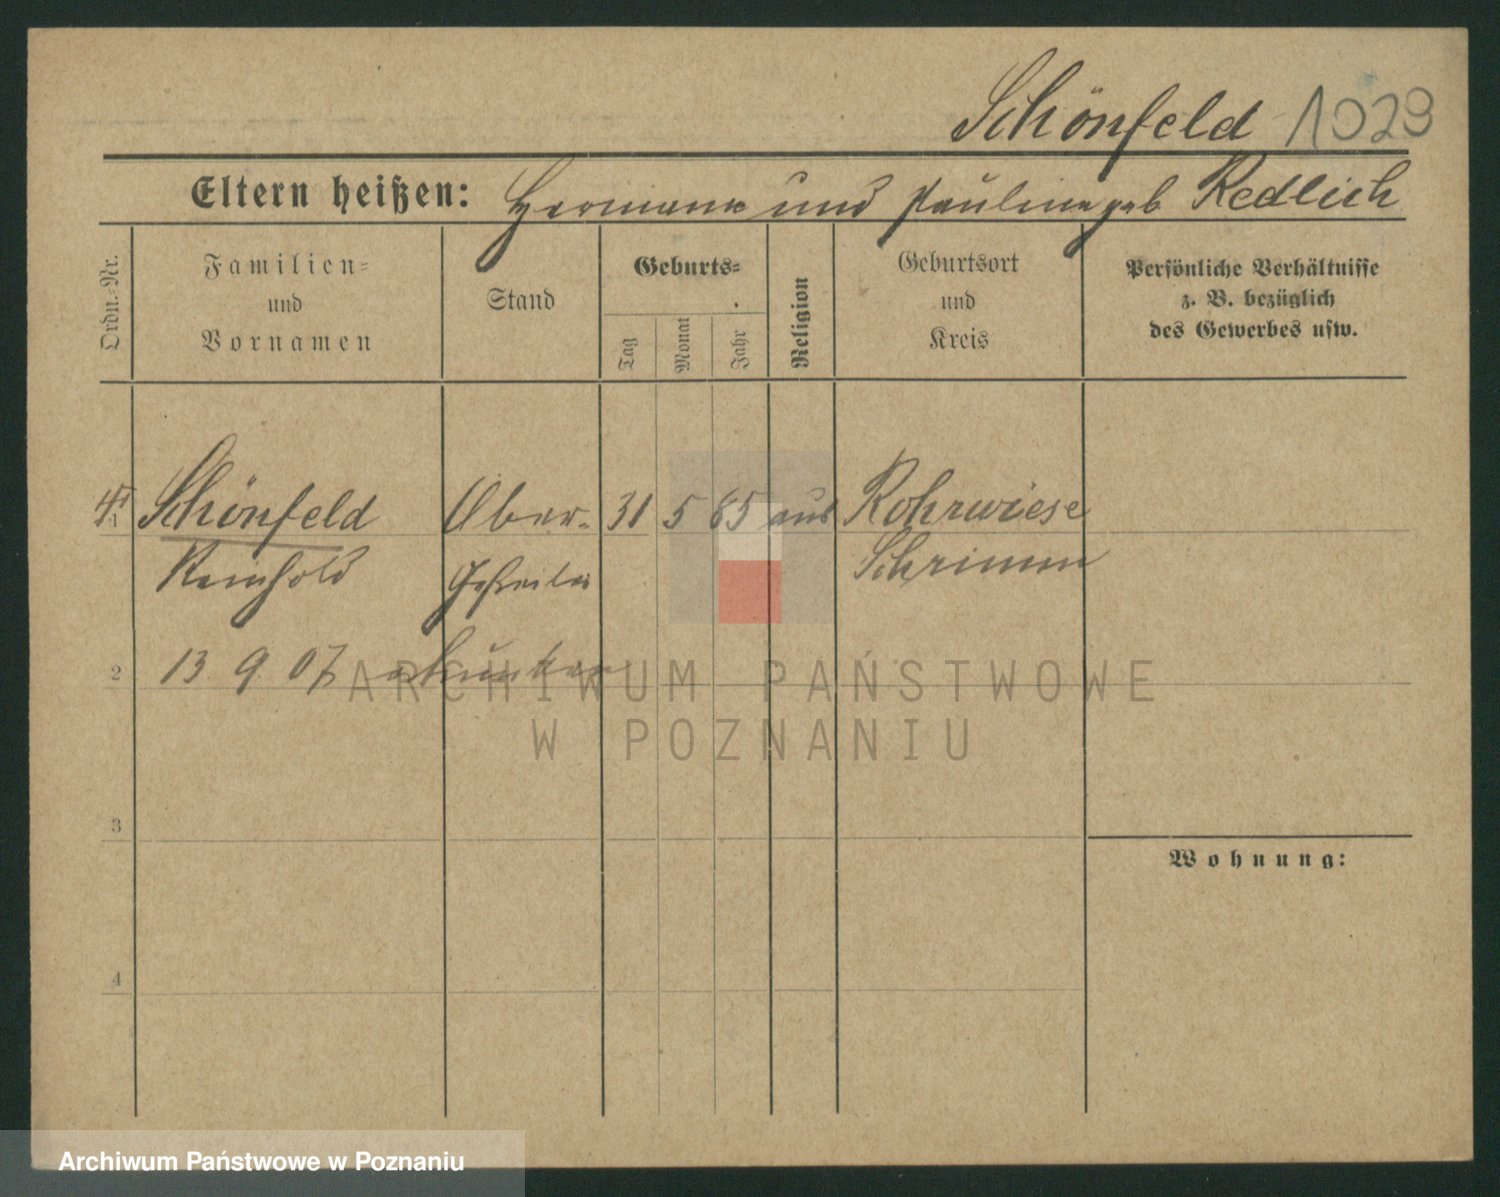 Schönfeld 1029
Eltern heißen: Hermann und Pauline geb Redlich
Ordn.-Nr.
Familien-
und
Vornamen
Stand
Geburts-
Tag
Monat
Jahr
Religion
Geburtsort
und
Kreis
Persönliche Verhältnisse
z. B. bezüglich
des Gewerbes usw.
1 Schönfeld Ober- 31 5 85 aus Rohrwiese
Reinhold Schrimm
2 13. 9. 07
3
4
Wohnung:
ARCHIWUM PAŃSTWOWE
W POZNANIU
Archiwum Państwowe w Poznaniu